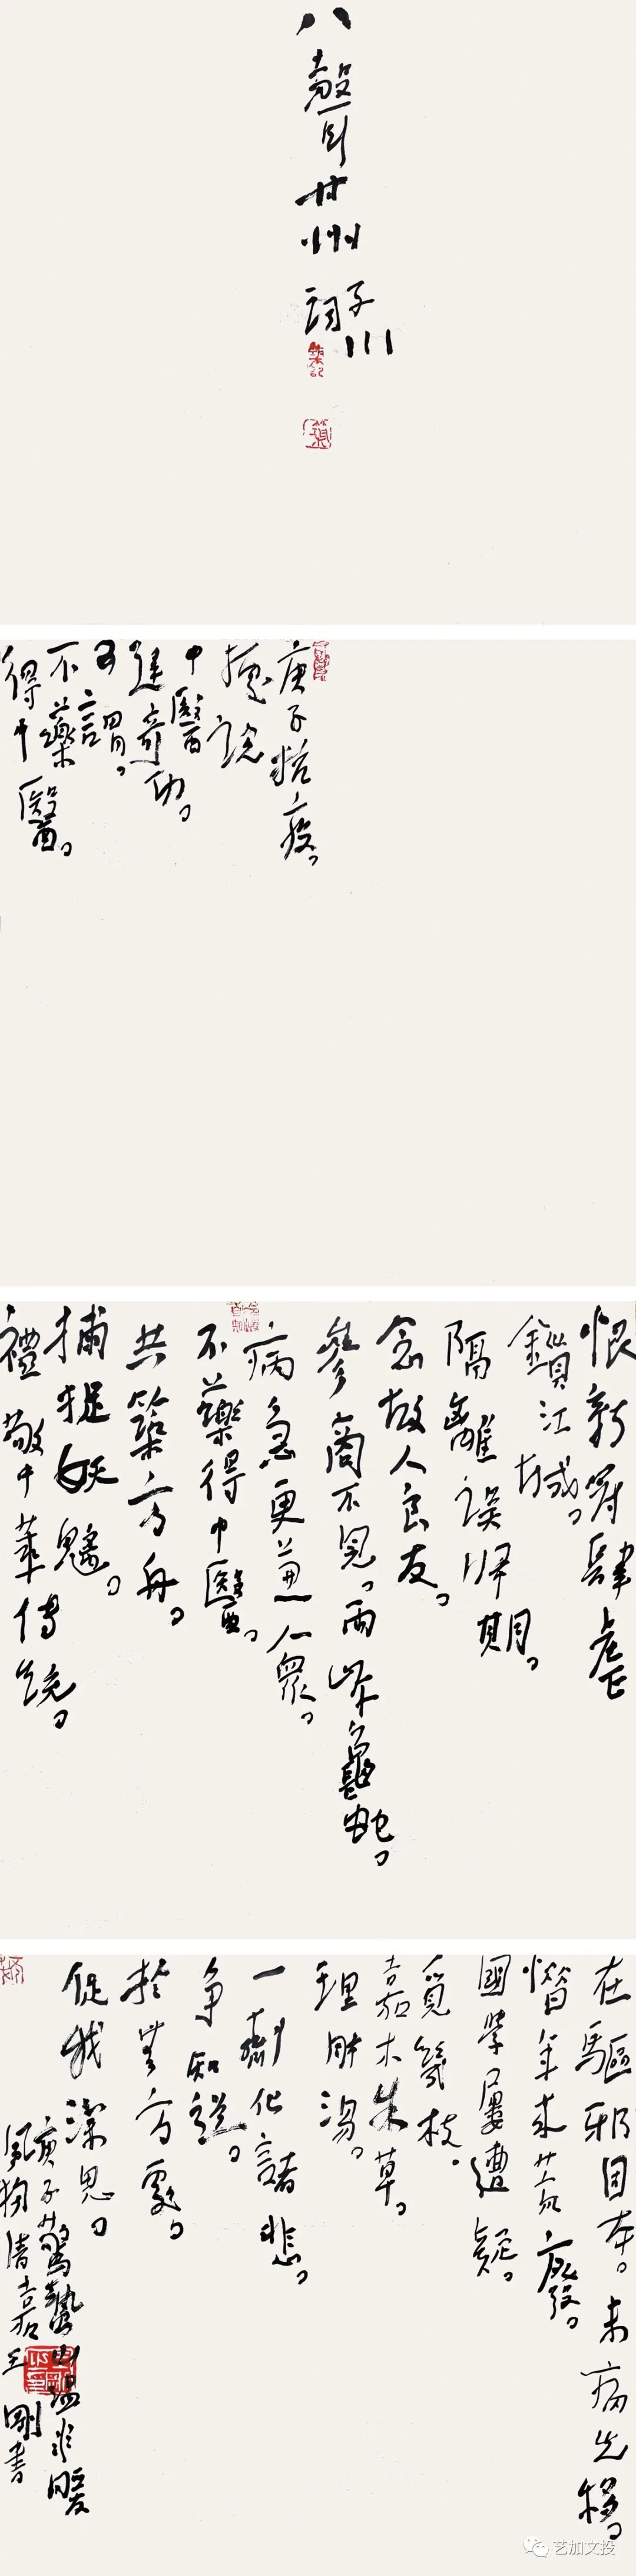 八聲甘州
子川
詞
庚子抗疫。
中醫
建奇功。
可謂。
不藥
得中醫。
恨新冠肆虐
鎖江城。
隔離誤歸期。
念故人良友。
參商不見。兩岸龜蛇。
病急更兼人衆。
不藥得中醫。
共築方舟。
捕捉妖魑。
禮敬中華傳統。
在驅邪固本。未病先移。
惜年來荒廢。
國學屢遭疑。
覓幾枝。
嘉木朱草。
理肺湯。
一劑化諸悲。
爭知道。
於無方處。
促我潔思。
庚子驚蟄山温水暖
風物清嘉王剛書
艺加文投